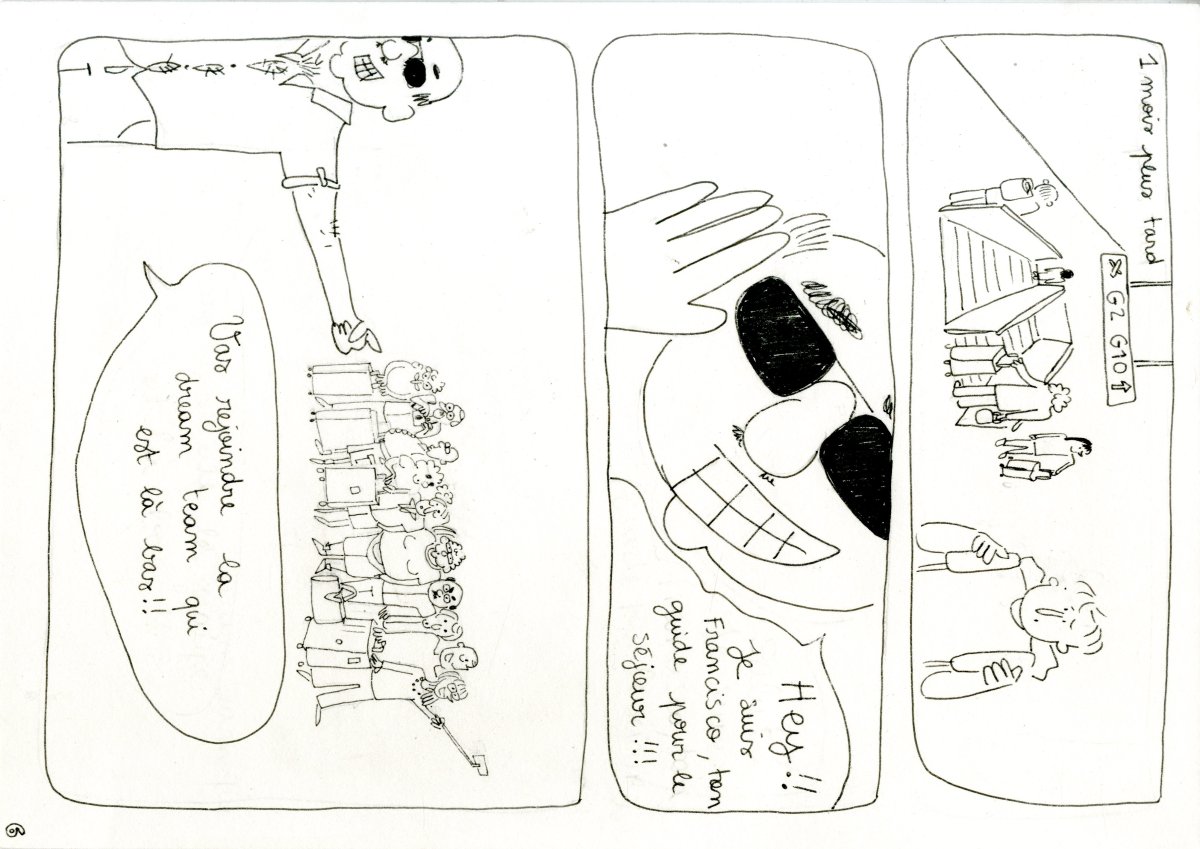 1 mois plus tard
G2 G10 ↑
Hey!!
Je suis
Francisco, ton
guide pour le
séjour !!!
Vas rejoindre la
dream team qui
est là bas!!